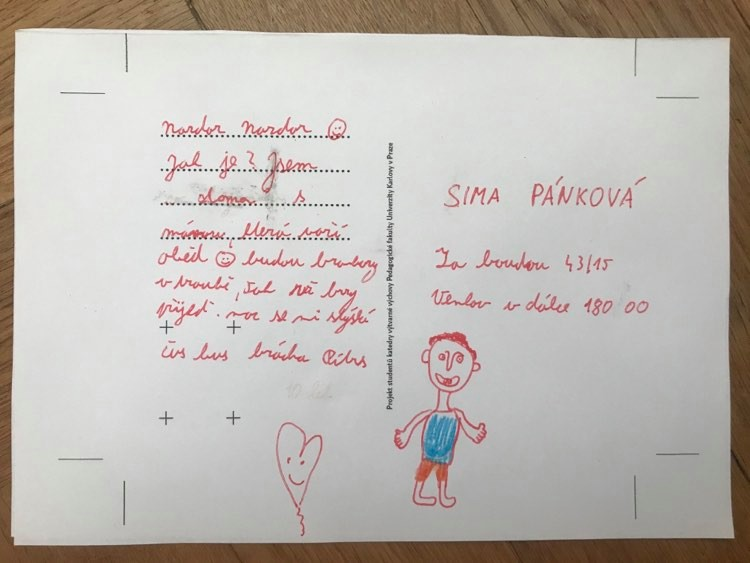 nazdar nazdar
Jak je? Jsem
doma s
mámou, která vaří
oběd budou brambory
v troubě, tak
přijeď. moc se mi stýská
čus bus brácha
10 let
Projekt studentů katedry výtvarné výchovy Pedagogické fakulty Univerzity Karlovy v Praze
SIMA PÁNKOVÁ
Za boudou 43/15
Venkov v dálce 180 00